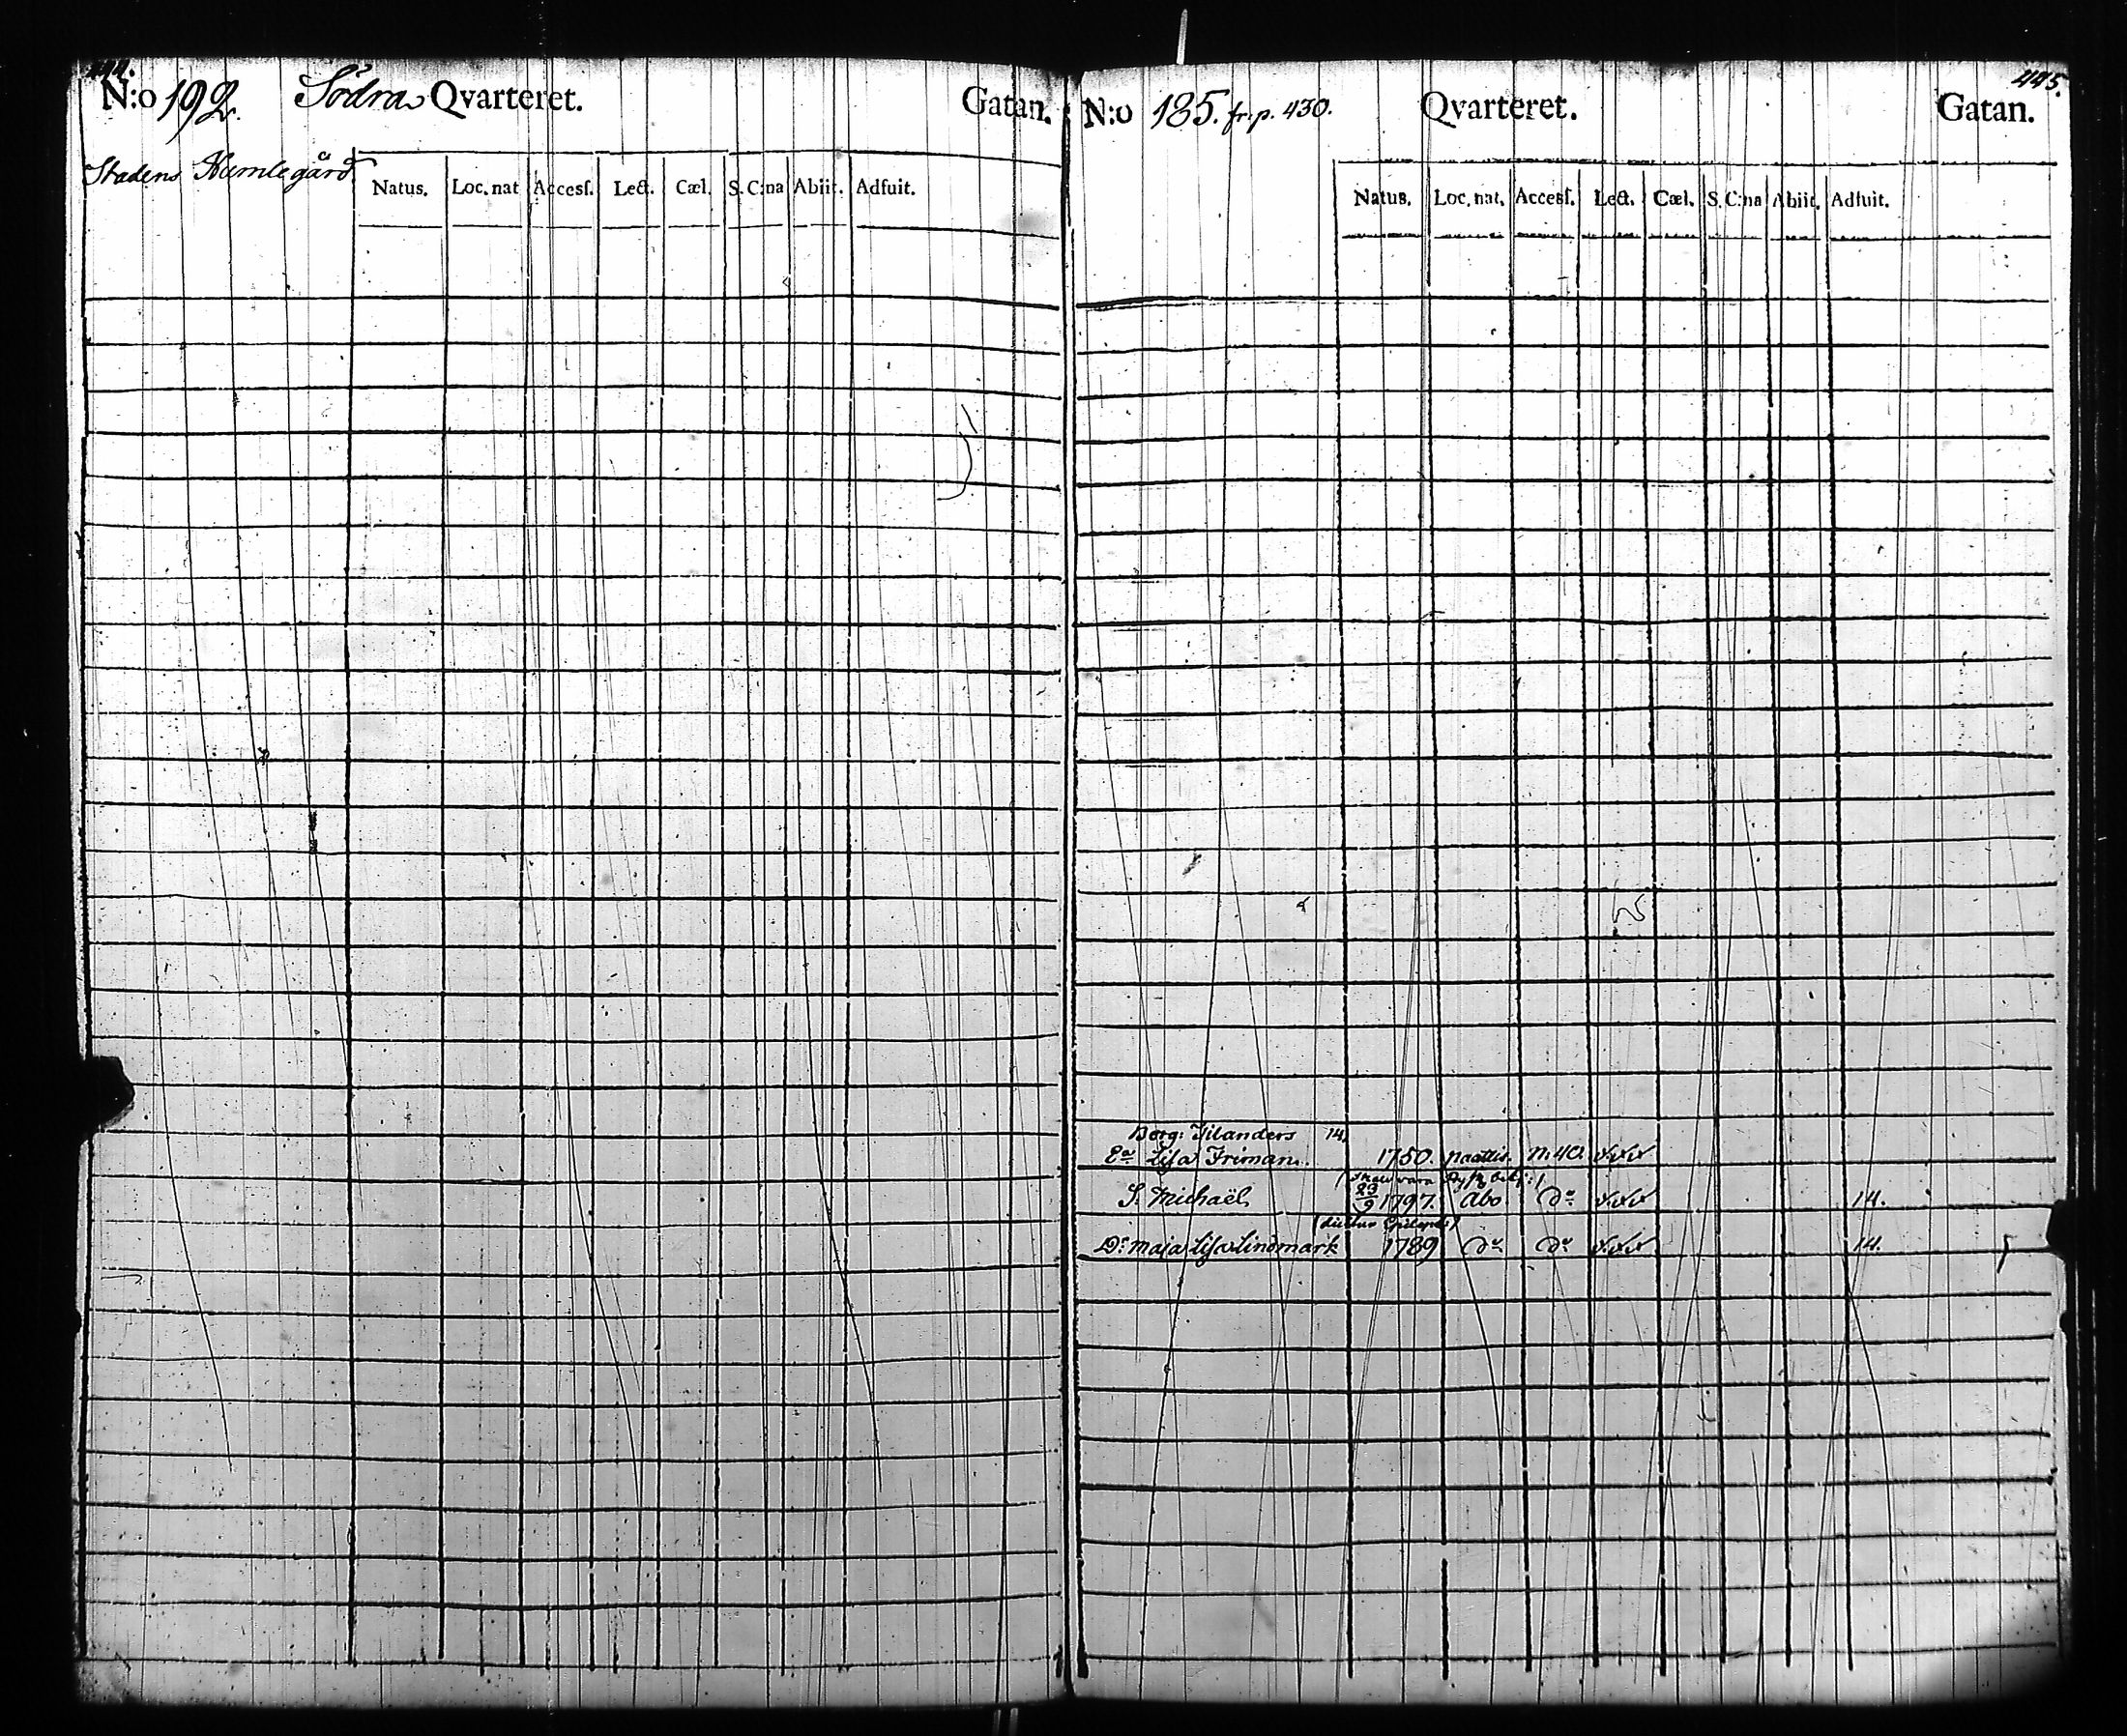 444.
N:o 192. Södra Qvarteret. Gatan.
Stadens Humlegård
Natus. Loc. nat Accesſ. Lect. Cæl. S. C:na Abiit. Adfuit.
445.
N:o 185. fr. p. 430. Qvarteret. Gatan.
Natus. Loc. nat. Accesſ. Lect. Cæl. S. C:na Abiit. Adfuit.
Borg: Tilanders 14.
Ea Lisa Friman. 1750. Naattis. N. 40.
(Skall vara
S. Michaël 23/9 1797. Abo. Do 14.
Dr Maja Lisa Lindmark 1789 Do Do 14.